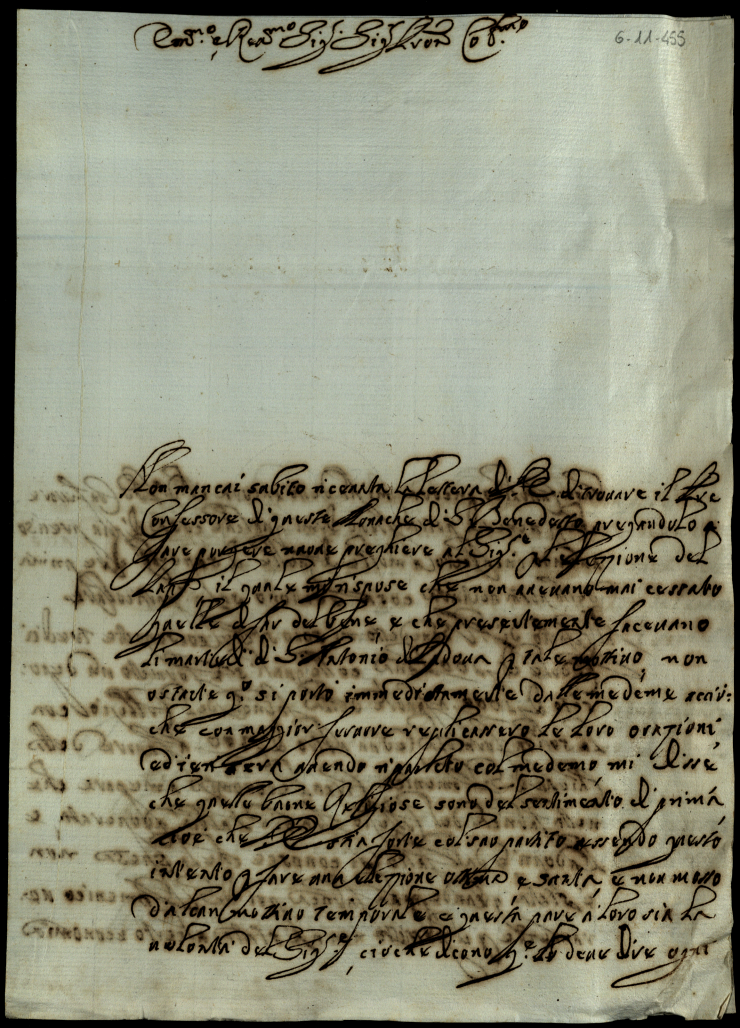 Em.mo e Re.mo Sig.r Sig.r Pron Co.mo
6-11-455
Non mancai subito riceuuta la lettera di V.E. di trouare il Pre
Confessore di queste Monache di S. Benedetto pregandolo a
fare porgere nuoue preghiere al Sig.re p l'elezzione del
Papa il quale mi rispose che non aueuano mai cessato
quelle di far del bene e che presentemente faceuano
li martedì di S. Antonio di Padoua p tale mottiuo non
ostante q.o si portò immediatamente dalle medeme acciò
che con maggior feruore replicassero le loro orazioni
ed ier sera auendo riparlato col medemo mi disse
che quelle buone Religiose sono del sentimento di prima
cioè che V.E. stia forte col suo partito essendo questo
intento p fare una elezzione ottima e santa e non mosso
da alcun mottiuo temporale e questa pare a loro sia la
uolontà del Sig.re, ciò che dicono p.e lo deue dire ogni